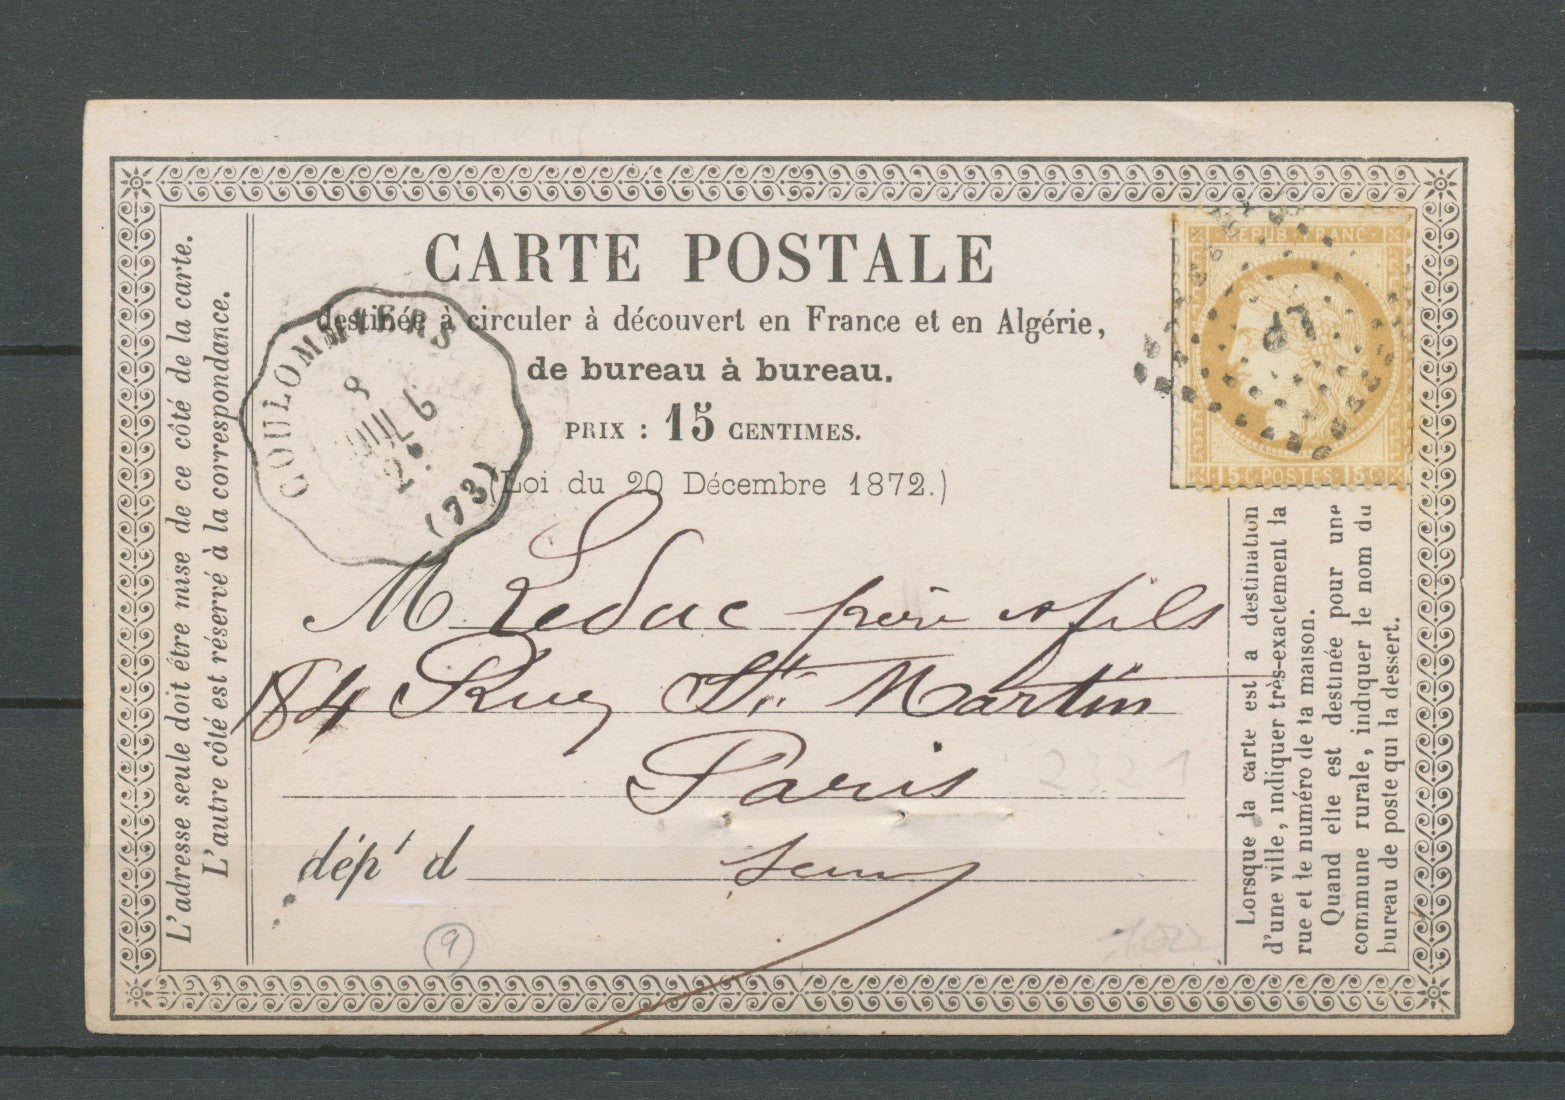 CARTE POSTALE
destinée à circuler à découvert en France et en Algérie,
de bureau à bureau.
PRIX : 15 CENTIMES.
(Loi du 20 Décembre 1872.)
L'adresse seule doit être mise de ce côté de la carte.
L'autre côté est réservé à la correspondance.
COULOMMIERS
8
JUIL
(73)
REPUB. FRANC.
15 C. POSTES 15 C.
M Leduc père et fils
184 Rue St. Martin
Paris
dépt d Seine
Lorsque la carte est a destination
d'une ville, indiquer très-exactement la
rue et le numéro de la maison.
Quand elle est destinée pour une
commune rurale, indiquer le nom du
bureau de poste qui la dessert.
2321
9